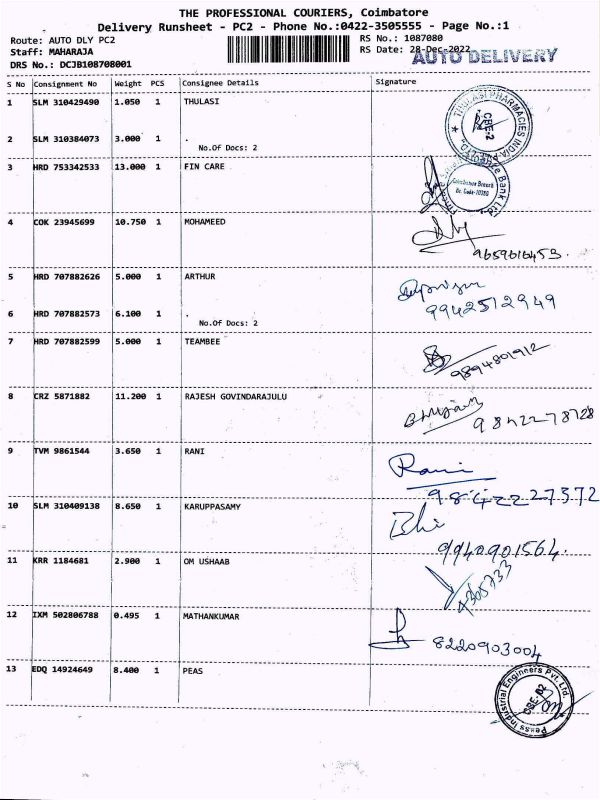 THE PROFESSIONAL COURIERS, Coimbatore
Delivery Runsheet - PC2 - Phone No.:0422-3505555 - Page No.:1
Route: AUTO DLY PC2
RS No.: 1087080
Staff: MAHARAJA
RS Date: 28-Dec-2022
AUTO DELIVERY
DRS No.: DCJB108708001
S No Consignment No Weight PCS Consignee Details Signature
1 SLM 310429490 1.050 1 THULASI
THULASI PHARMACIES INDIA
CBE-2
2 SLM 310384073 3.000 1 .
No.Of Docs: 2
3 HRD 753342533 13.000 1 FIN CARE
Coimbatore Branch
Bank Ltd
4 COK 23945699 10.750 1 MOHAMEED
9659616453.
5 HRD 707882626 5.000 1 ARTHUR
9942512949
6 HRD 707882573 6.100 1 .
No.Of Docs: 2
7 HRD 707882599 5.000 1 TEAMBEE
9894801912
8 CRZ 5871882 11.200 1 RAJESH GOVINDARAJULU
9842278728
9 TVM 9861544 3.650 1 RANI
Rani
9842227372
10 SLM 310409138 8.650 1 KARUPPASAMY
9940901564.
11 KRR 1184681 2.900 1 OM USHAAB
12 IXM 502806788 0.495 1 MATHANKUMAR
8220903004
13 EDQ 14924649 8.400 1 PEAS
Industrial Engineers Pvt. Ltd.